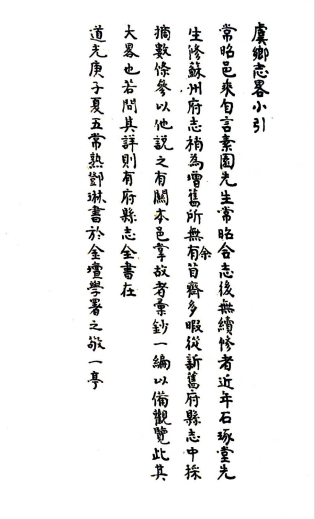 虞鄉志畧小引
常昭邑乘自言素園先生常昭合志後無續修者近年石琢堂先
生修蘇州府志稍為增舊所無余有苜齋多暇從新舊府縣志中採
摘數條參以他說之有關本邑掌故者彙鈔一編以備觀覽此其
大畧也若問其詳則有府縣志全書在
道光庚子夏五常熟鄧琳書於金壇學署之敬一亭